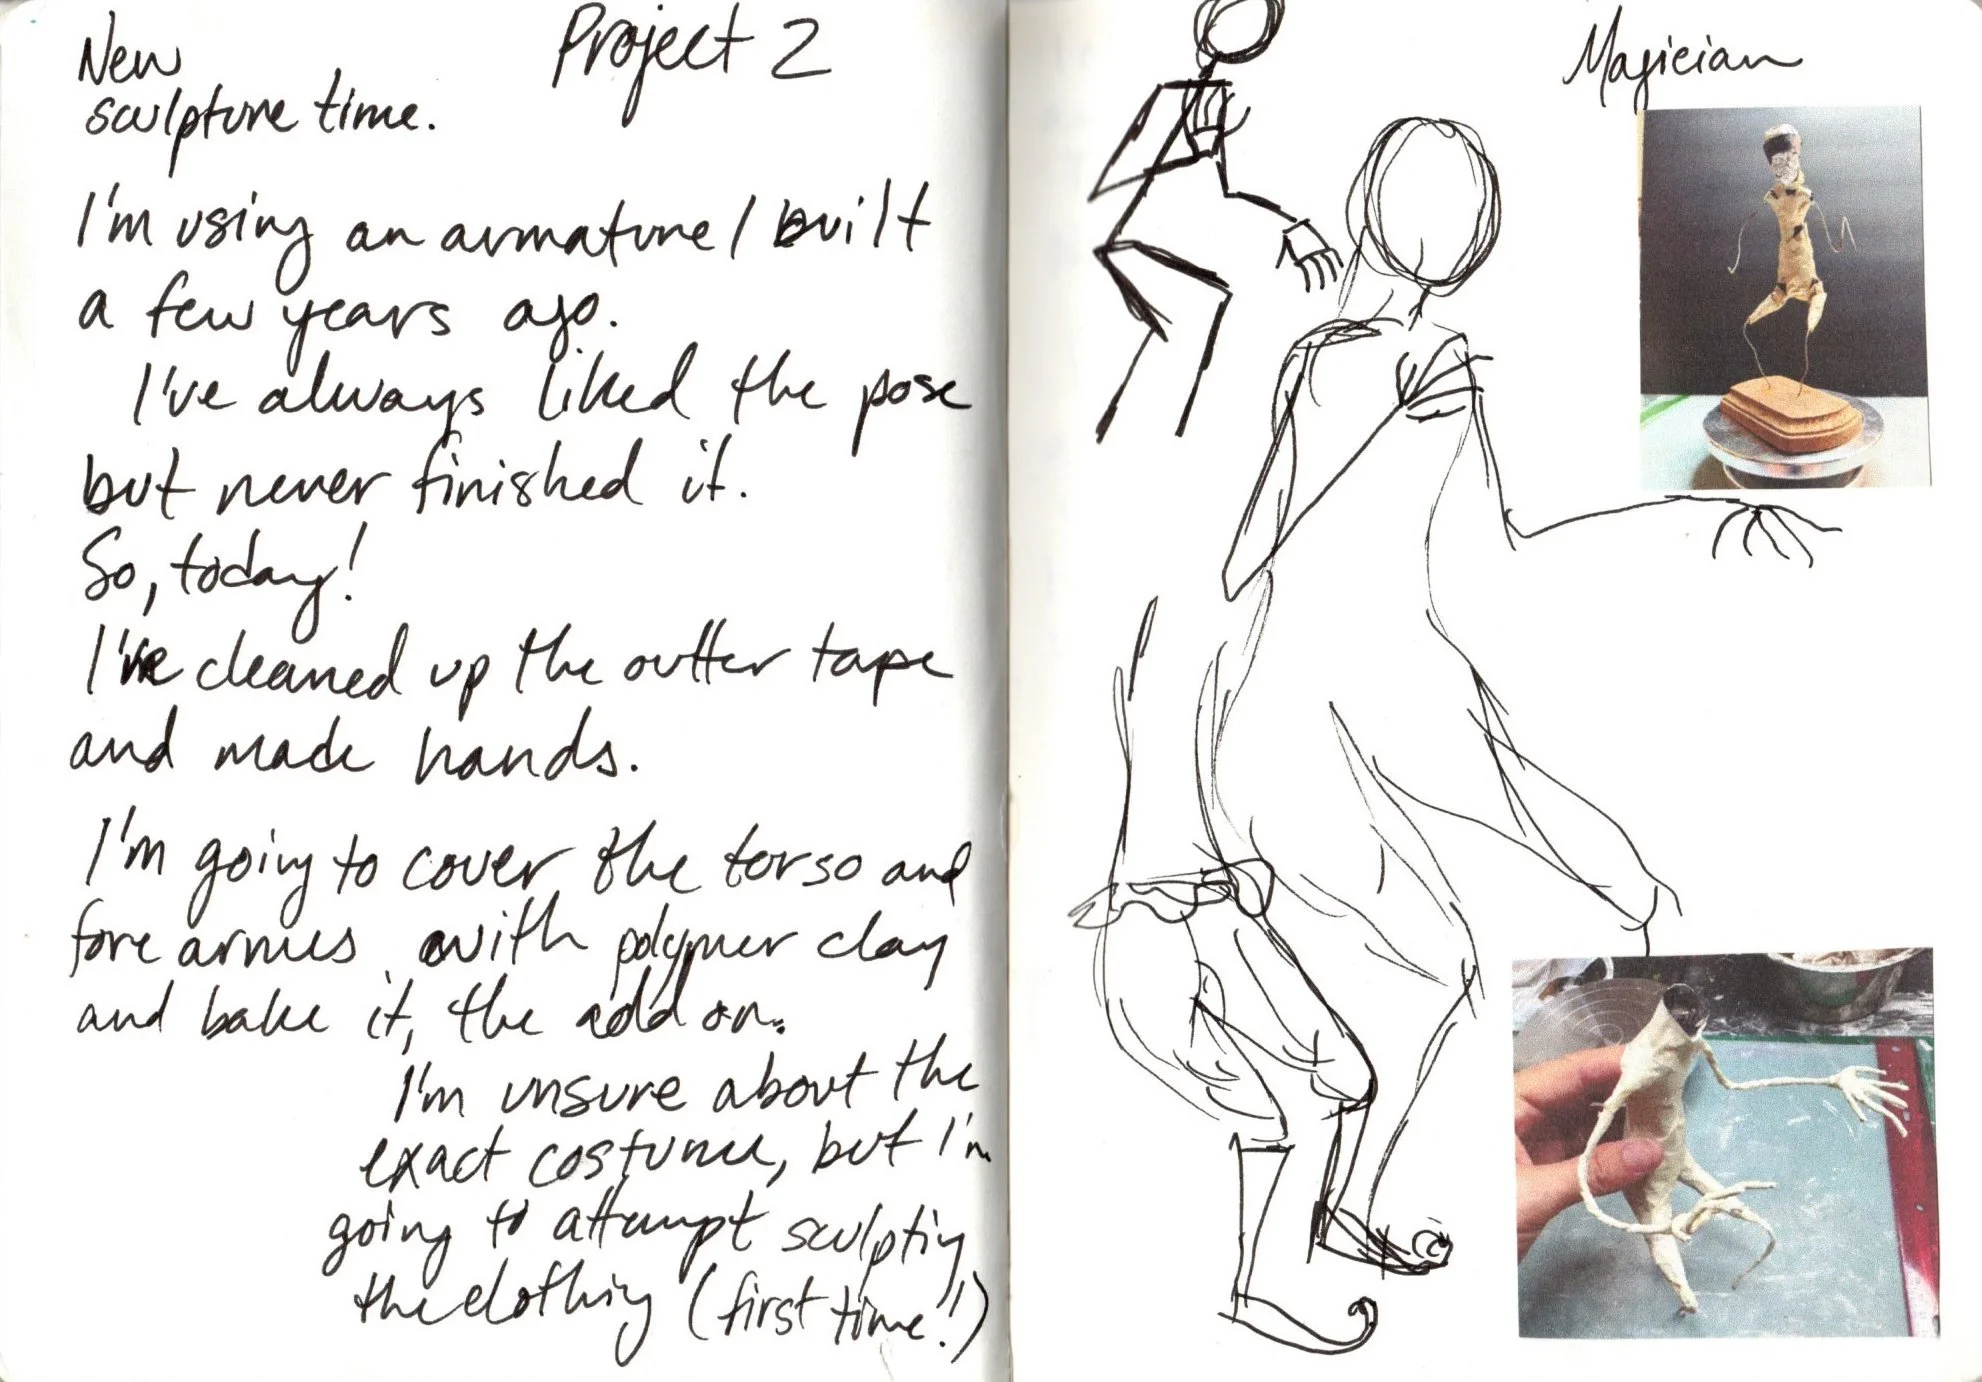 New
sculpture time.
Project 2
I'm using an armature I built
a few years ago.
I've always liked the pose
but never finished it.
So, today!
I've cleaned up the outter tape
and made hands.
I'm going to cover the torso and
fore armes with polymer clay
and bake it, the add on.
I'm unsure about the
exact costume, but I'm
going to attempt sculpting
the clothing (first time!!)
Magician